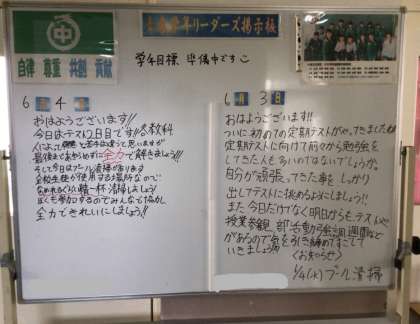 中
自律 尊重 共創 貢献
学年リーダーズ掲示板
学年目標 準備中です
6月4日
おはようございます!!
今日はテスト2日目です!!各教科
人によって得意と苦手は違うと思いますが
最後まであきらめずに全力で解きましょう!!
そして今日はプール清掃があります!
全校生徒が使用する場所なので
なめれるくらい精一杯 清掃しましょう!
ぼくも参加するのでみんなで協力し
全力できれいにしましょう!!
6月3日
おはようございます!!
ついに初めての定期テストがやってきました
定期テストに向けて前々から勉強を
してきた人も多いのではないでしょうか。
自分が頑張ってきた事をしっかり
出してテストに挑めるようにしましょう!!
また今日だけでなく明日からもテストや
授業参観、部活動 週間など
があるので気を引き締めてすごして
いきましょう!!
〈お知らせ〉
6/4(水)プール清掃